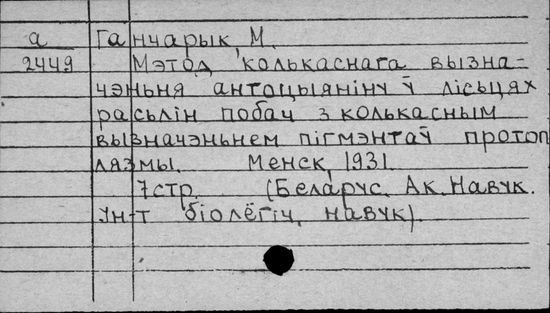 а Ганчарык, М.
2449 Мэтод колькаснага вызна-
чэньня антоцыяніну ў лісьцях
расьлін побач з колькасным
вызначэньнем пігмэнтаў протоп
лязмы. Менск, 1931.
7стр. (Беларус. Ак. Навук.
Ін-т біолёгіч. навук).